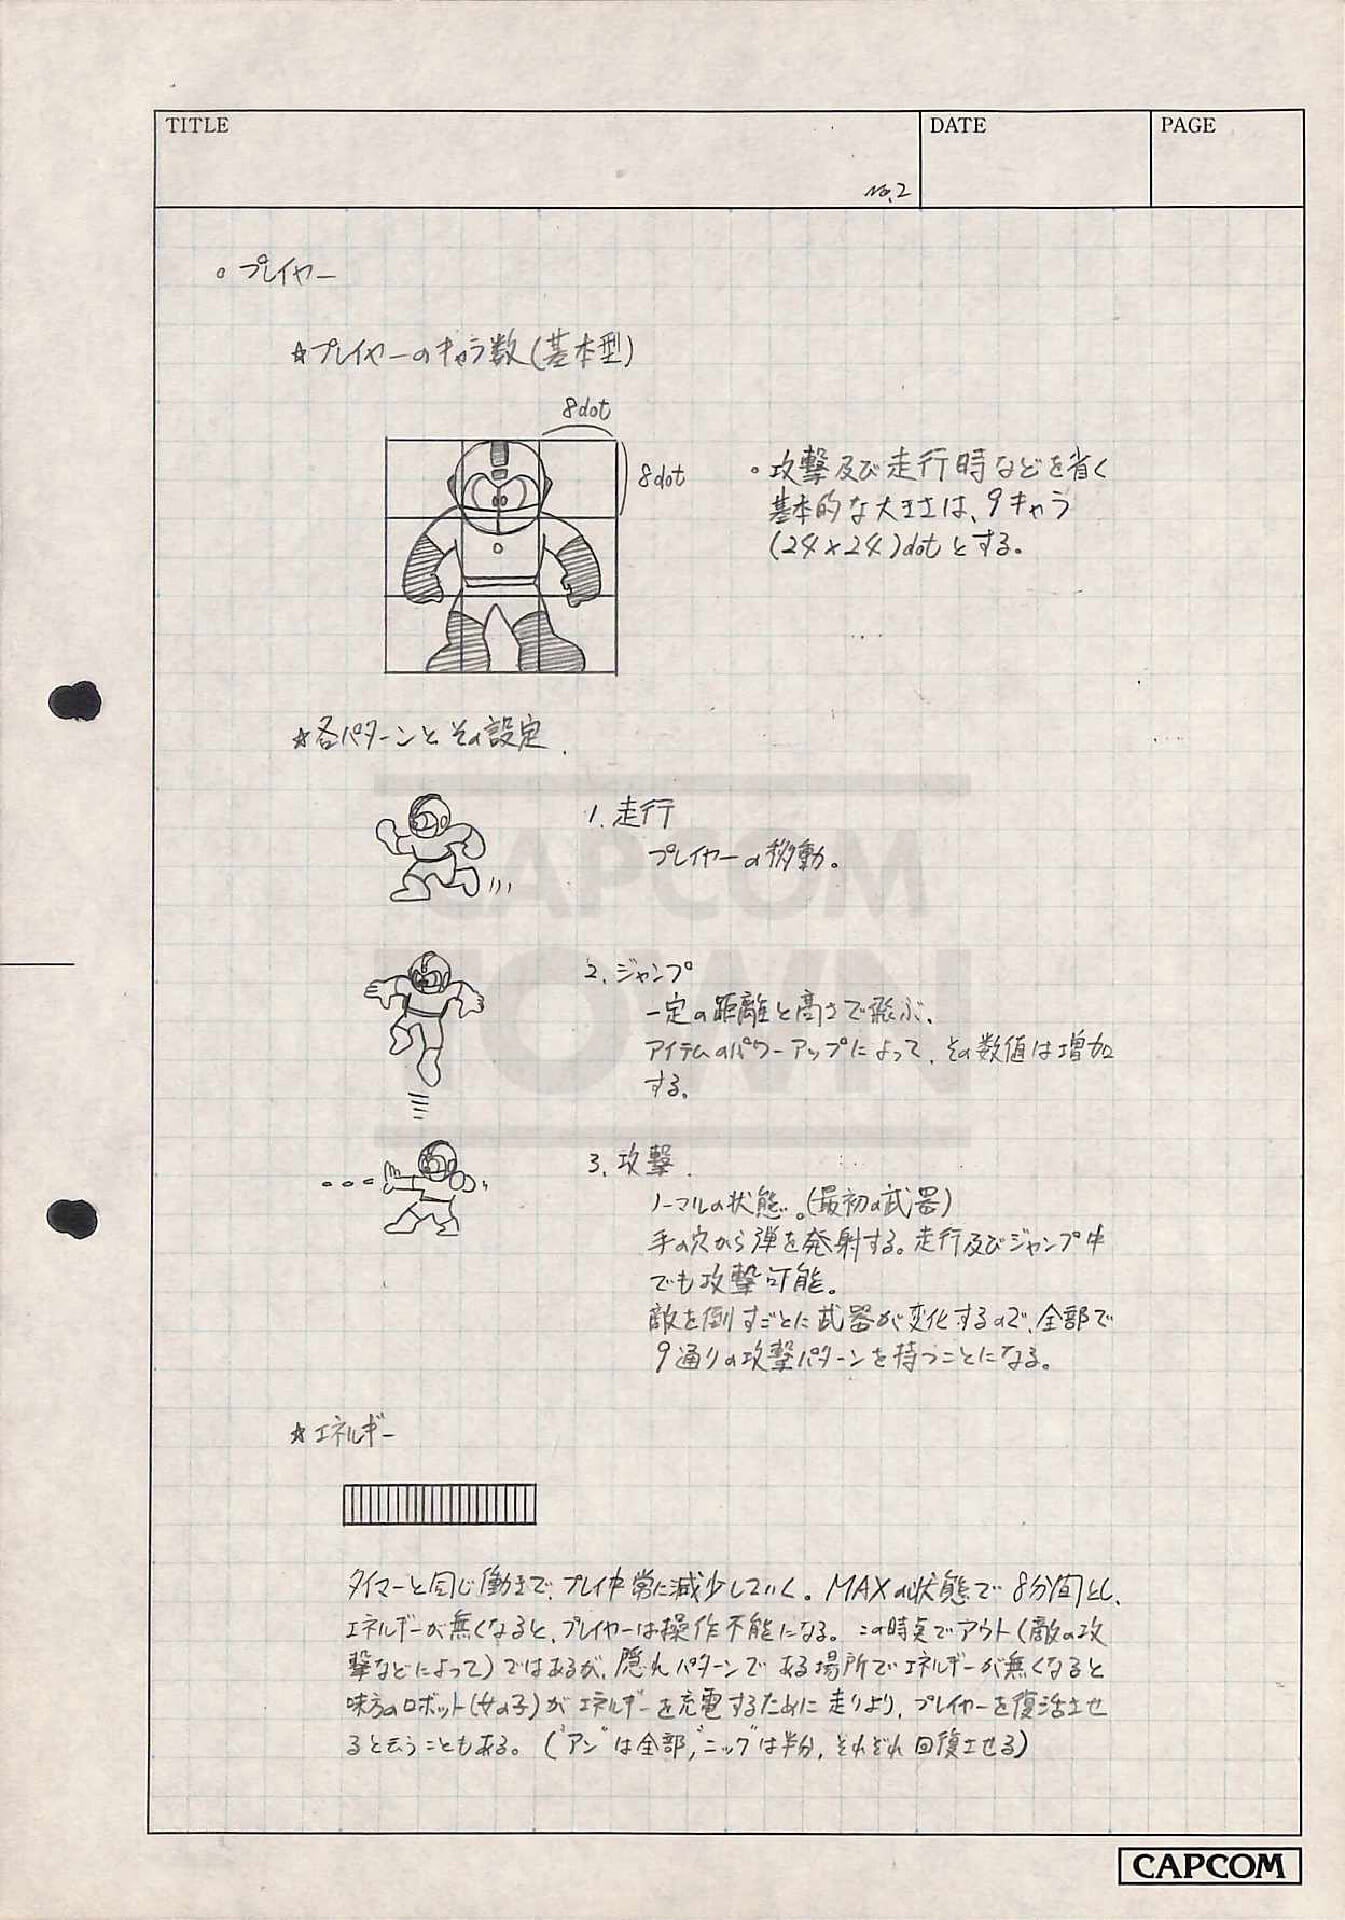 TITLE
DATE
PAGE
No.2
○プレイヤー
☆プレイヤーのキャラ数(基本型)
8dot
8dot
・攻撃及び走行時などを省く
基本的な大きさは、9キャラ
(24×24)dotとする。
☆各パターンとその設定.
1.走行
プレイヤーの移動。
2.ジャンプ
一定の距離と高さで飛ぶ、
アイテムのパワーアップによって、その数値は増加
する。
3.攻撃.
ノーマルの状態。(最初の武器)
手の穴から弾を発射する。走行及びジャンプ中
でも攻撃可能。
敵を倒すごとに武器が変化するので、全部で
9通りの攻撃パターンを持つことになる。
☆エネルギー
タイマーと同じ働きで、プレイ中常に減少していく。MAXの状態で8分間とし、
エネルギーが無くなると、プレイヤーは操作不能になる。この時点でアウト(敵の攻
撃などによって)ではあるが、隠れパターンである場所でエネルギーが無くなると
味方のロボット(女の子)がエネルギーを充電するために走りより、プレイヤーを復活させ
ると云うこともある。("アン"は全部,"ニップ"は半分,それぞれ回復させる)
CAPCOM
TOWN
CAPCOM